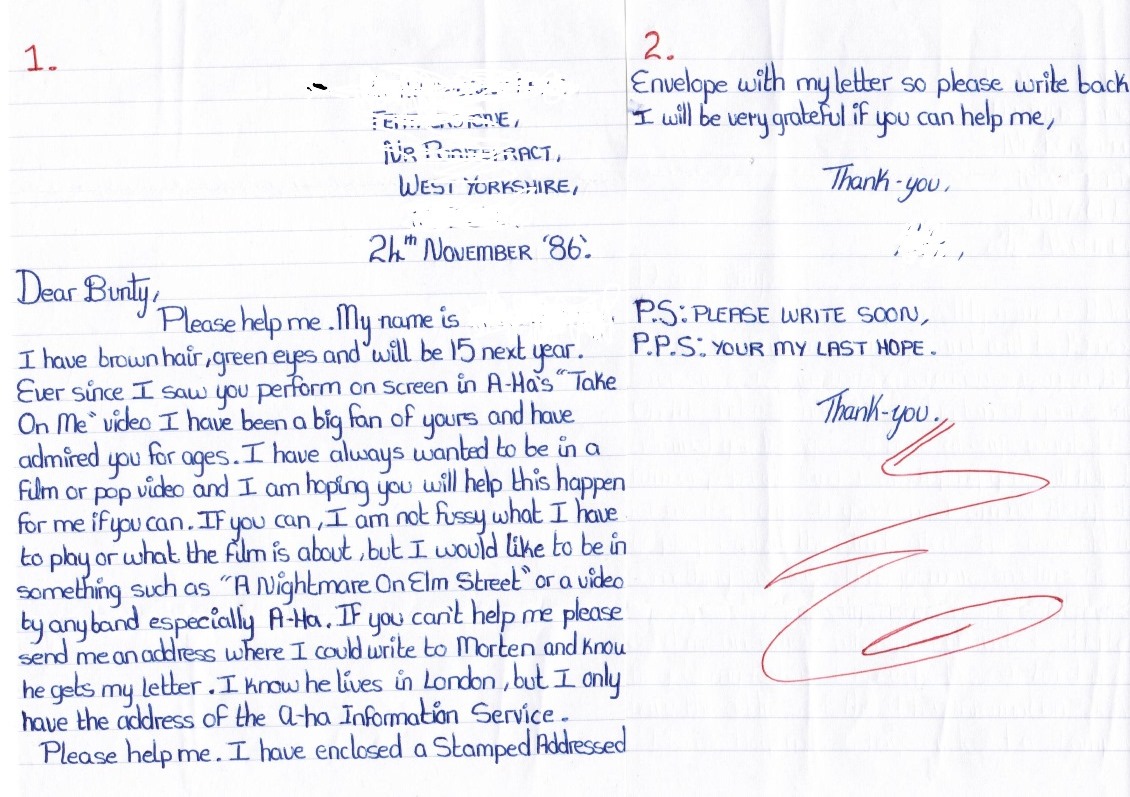 1.
WEST YORKSHIRE,
24th NOVEMBER '86.
Dear Bunty,
Please help me. My name is
I have brown hair, green eyes and will be 15 next year.
Ever since I saw you perform on screen in A-Ha's "Take
On Me" video I have been a big fan of yours and have
admired you for ages. I have always wanted to be in a
film or pop video and I am hoping you will help this happen
for me if you can. If you can, I am not fussy what I have
to play or what the film is about, but I would like to be in
something such as "A Nightmare On Elm Street" or a video
by any band especially A-Ha. If you can't help me please
send me an address where I could write to Morten and know
he gets my letter. I know he lives in London, but I only
have the address of the a-ha Information Service.
Please help me. I have enclosed a Stamped Addressed
2.
Envelope with my letter so please write back
I will be very grateful if you can help me,
Thank-you,
P.S: PLEASE WRITE SOON,
P.P.S: YOUR MY LAST HOPE.
Thank-you.